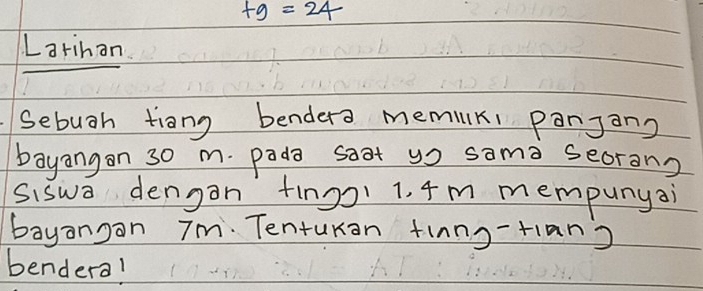 tg = 24
Latihan
Sebuah tiang bendera memiliki panjang
bayangan 30 m. pada saat yg sama seorang
siswa dengan tinggi 1,4 m mempunyai
bayangan 7m. Tentukan tiang-tiang
bendera!